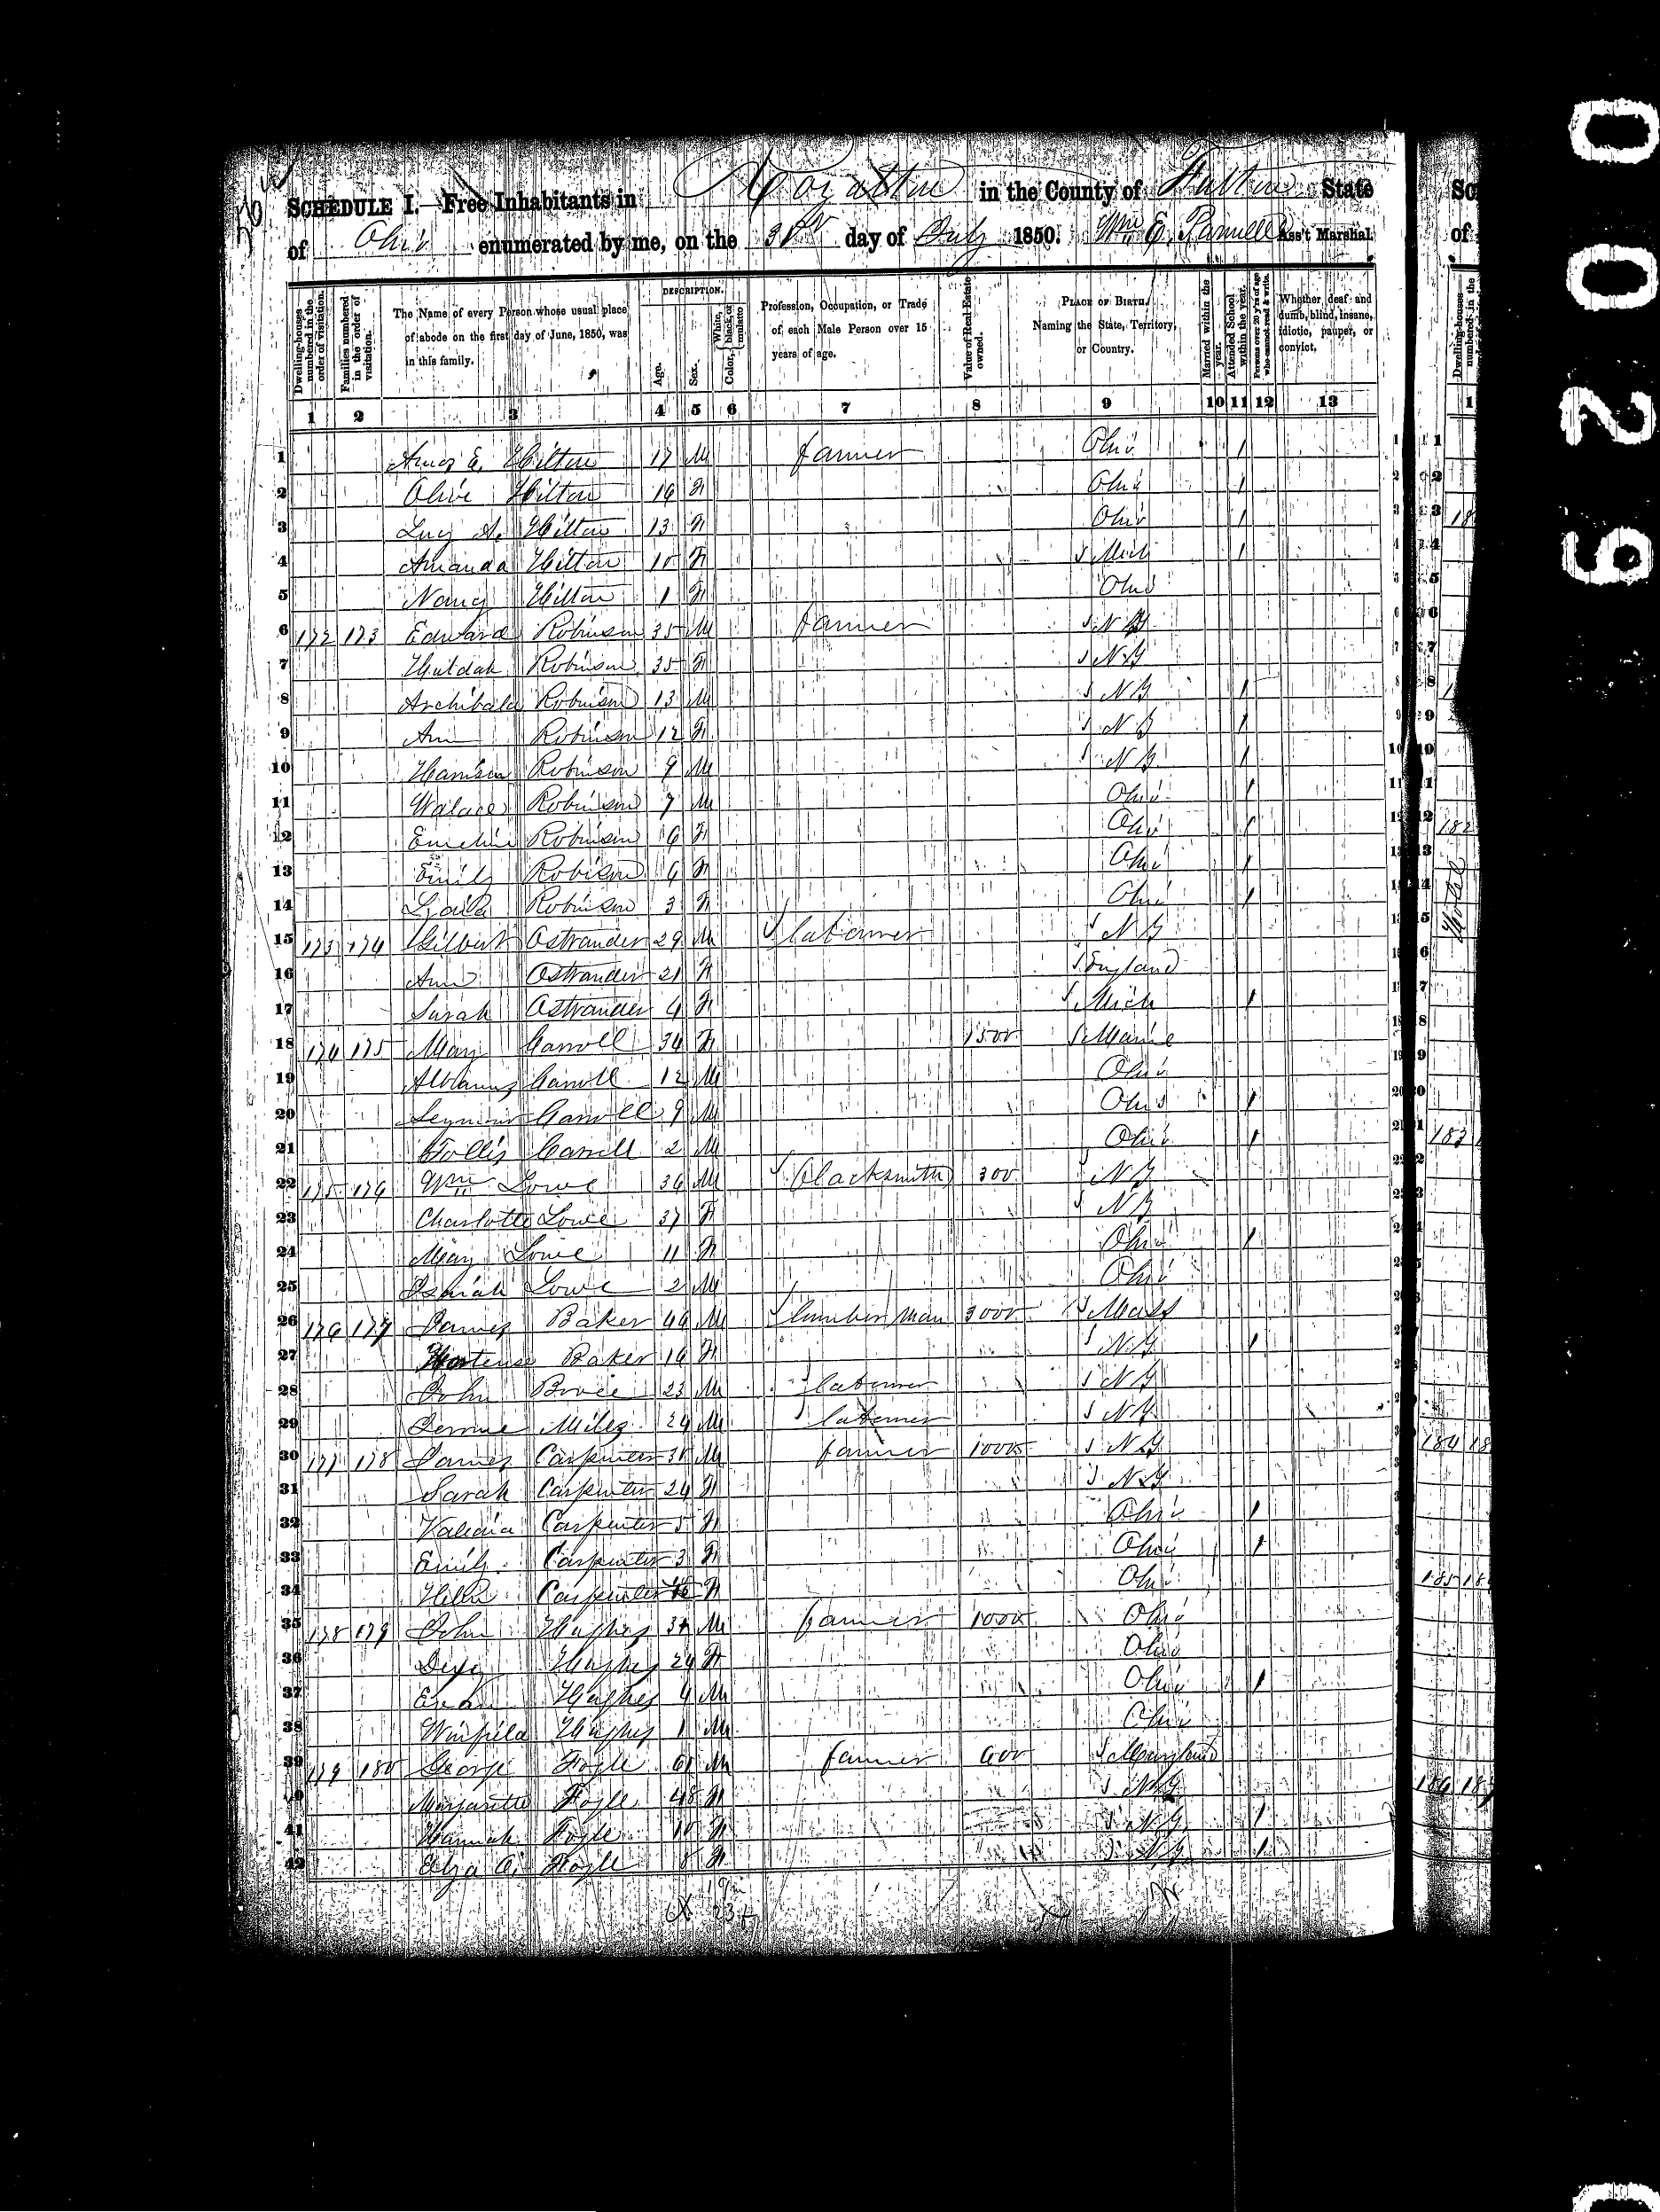 SCHEDULE I. Free Inhabitants in Royalton in the County of Fulton State
of Ohio enumerated by me, on the 30th day of July 1850. Wm E. Parmelee Ass't Marshal.
Dwelling-houses numbered in the order of visitation.
Families numbered in the order of visitation.
The Name of every Person whose usual place of abode on the first day of June, 1850, was in this family.
DESCRIPTION.
Age.
Sex.
Color, White, black, or mulatto
Profession, Occupation, or Trade of each Male Person over 15 years of age.
Value of Real Estate owned.
PLACE OF BIRTH. Naming the State, Territory, or Country.
Married within the year.
Attended School within the year.
Persons over 20 y'rs of age who cannot read & write.
Whether deaf and dumb, blind, insane, idiotic, pauper, or convict.
1 2 3 4 5 6 7 8 9 10 11 12 13
1 Amos E. Hilton 17 M farmer Ohio 1
2 Olive Hilton 16 F Ohio 1
3 Lucy A. Hilton 13 F Ohio 1
4 Amanda Hilton 10 F Mich 1
5 Nancy Hilton 1 F Ohio
6 172 173 Edward Robinson 35 M farmer N Y
7 Huldah Robinson 35 F N Y
8 Archibald Robinson 13 M N Y 1
9 Ann Robinson 12 F N Y 1
10 Harrison Robinson 9 M N Y 1
11 Walace Robinson 7 M Ohio 1
12 Emeline Robinson 6 F Ohio 1
13 Emily Robison F Ohio 1
14 Robinson 3 F Ohio 1
15 173 174 Gilbert Ostrander 29 M laborer N Y
16 Ann Ostrander 21 F England
17 Sarah Ostrander 4 F Mich 1
18 174 175 Mary Carroll 34 F 1500 Maine
19 Carroll 12 M Ohio
20 Seymour Carroll 9 M Ohio 1
21 Follis Carroll 2 M Ohio 1
22 175 176 Wm Lowe 36 M Blacksmith 300 N Y
23 Charlotte Lowe 37 F N Y
24 Mary Lowe 11 F Ohio 1
25 Isaiah Lowe 2 M Ohio
26 176 177 James Baker 46 M lumber man 3000 Mass
27 Hortense Baker 16 F N Y 1
28 John Bovee 23 M laborer N Y
29 Miles 24 M laborer N Y
30 177 178 James Carpenter M farmer 1000 N Y
31 Sarah Carpenter 24 F N Y
32 Valeria Carpenter 5 F Ohio 1
33 Emily Carpenter 3 F Ohio 1
34 Helen Carpenter F Ohio
35 178 179 John Hughes M farmer 1000 Ohio
36 Hughes 24 F Ohio
37 Hughes 4 M Ohio 1
38 Winfield Hughes 1 M Ohio
39 179 180 George Fogle 61 M farmer 600 Maryland
40 Margarette Fogle 48 F N Y
41 Hannah Fogle 10 F N Y 1
42 Eliza A. Fogle 8 F N Y 1
19 m
23 f
182
Hotel
183
184
185
186 187
002 S